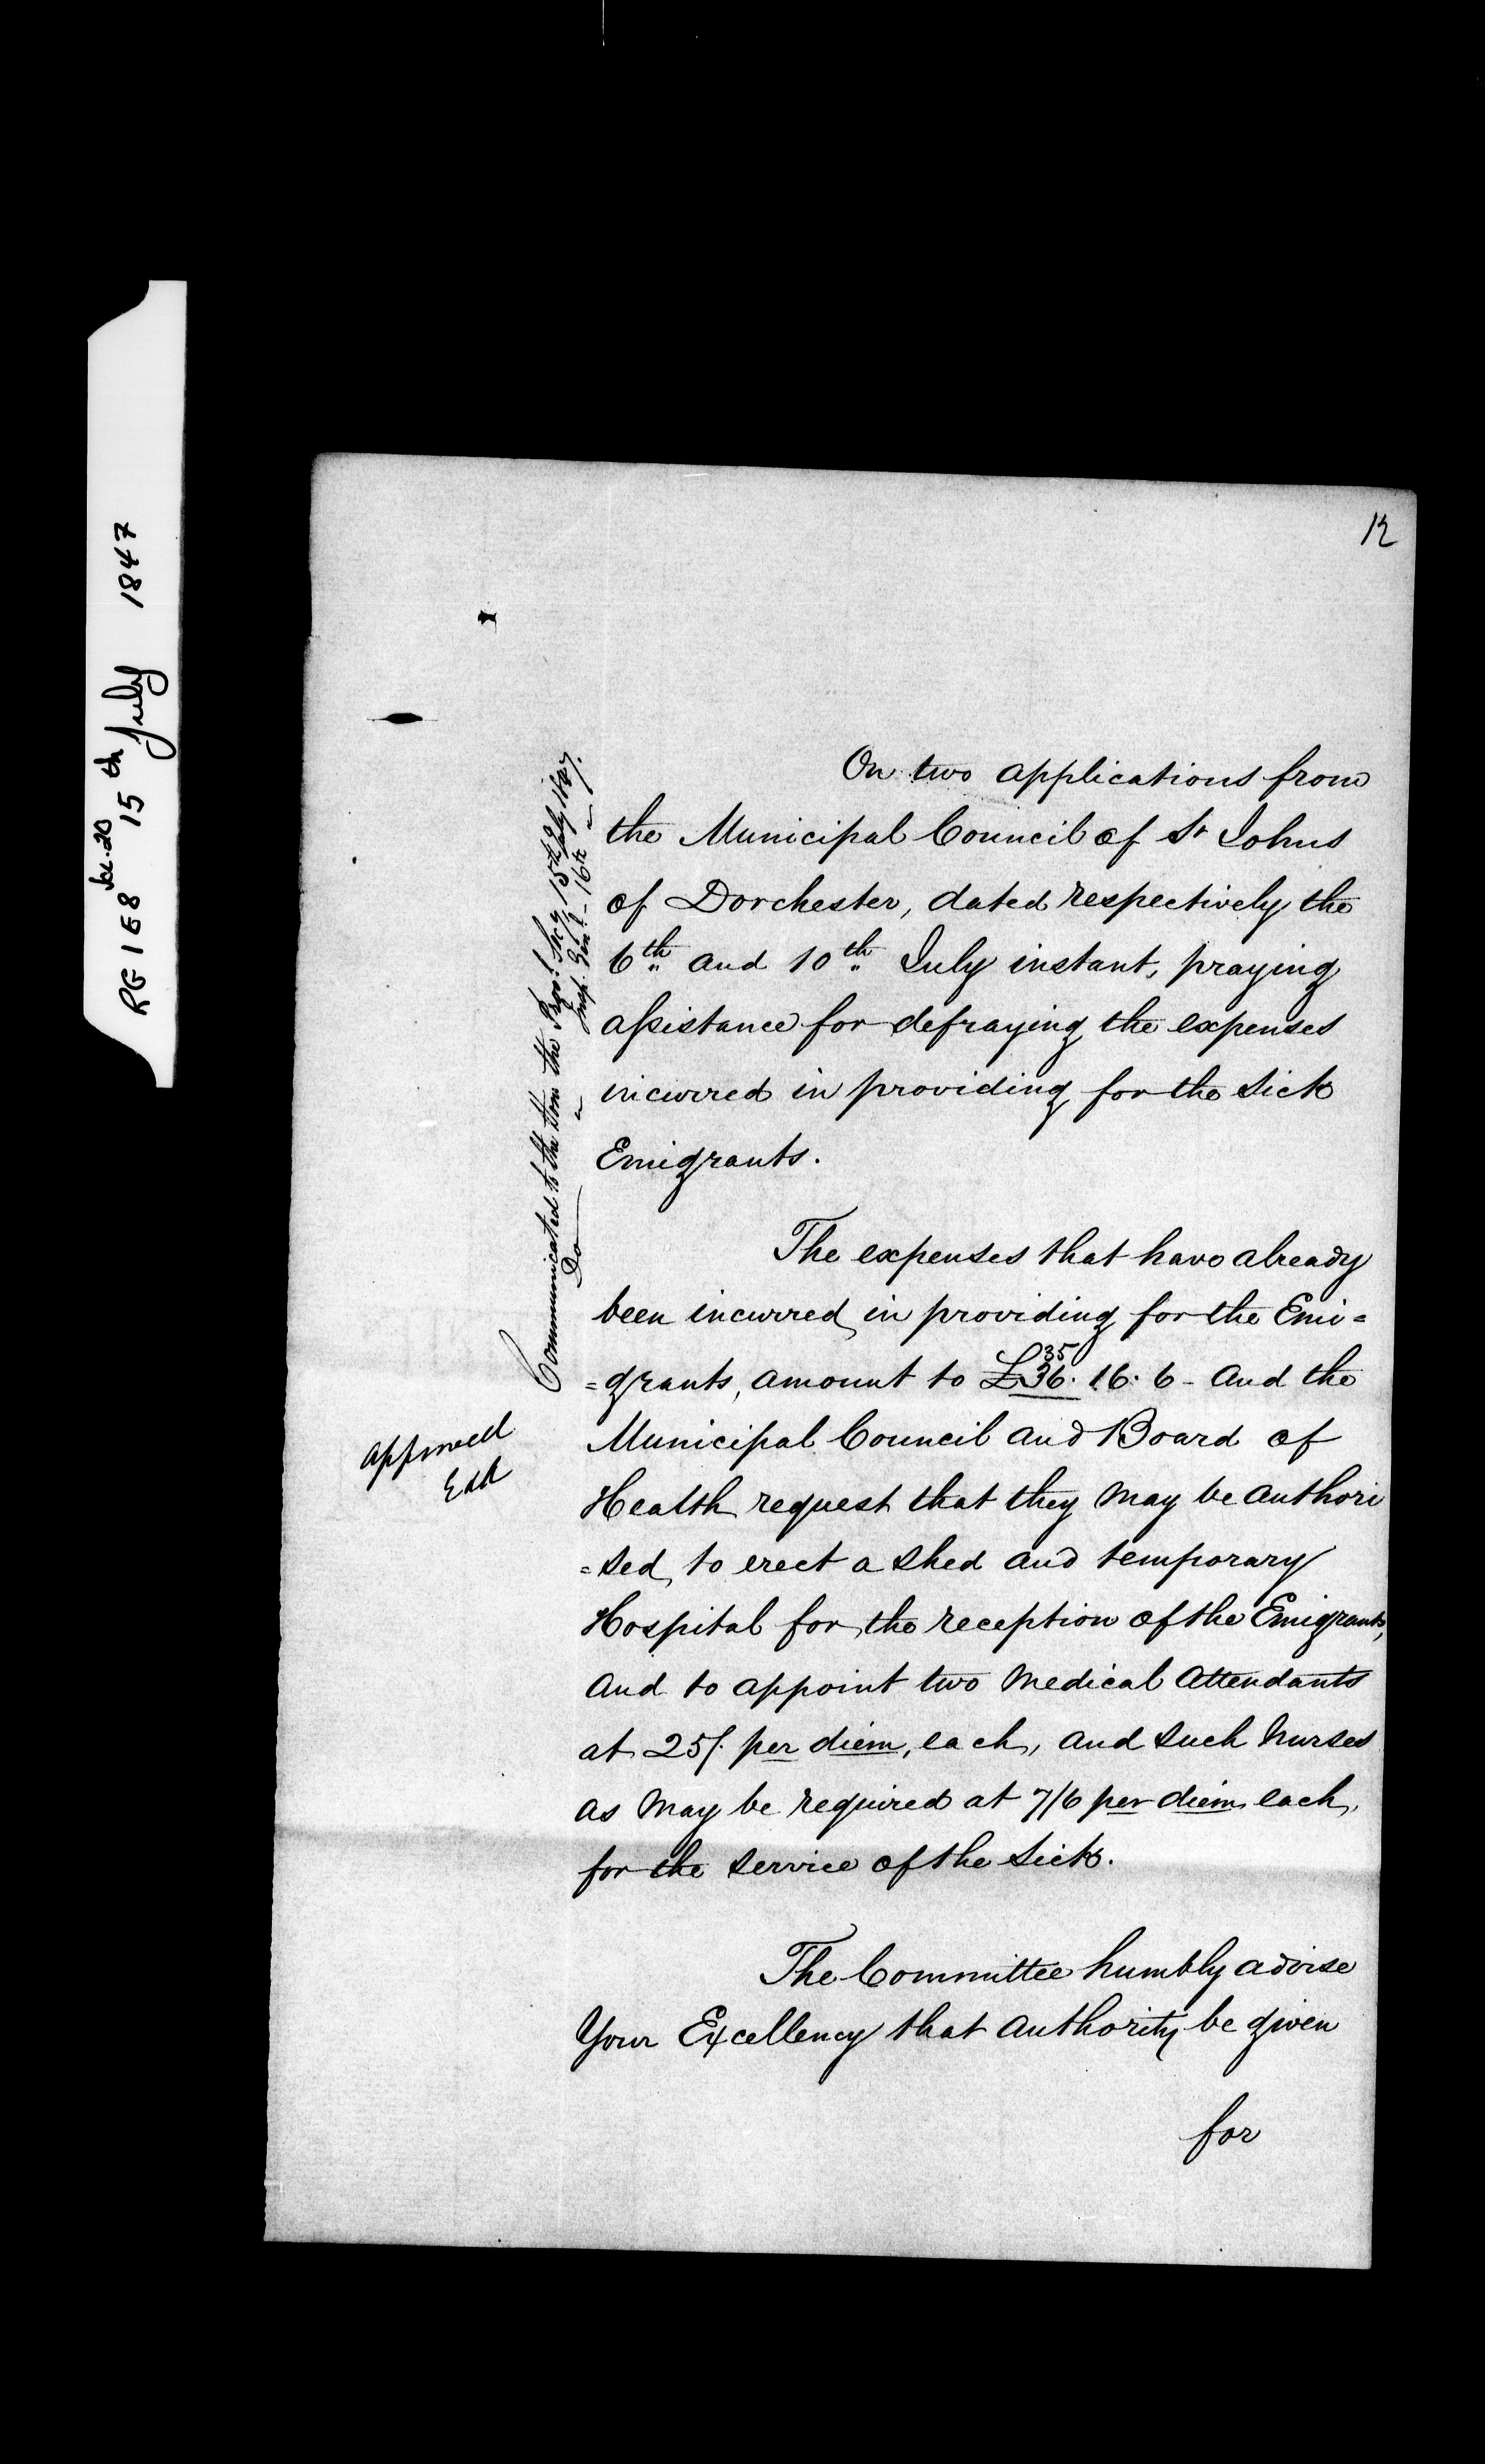 RG 1 E8 Vol. 20 15th July 1847
12
On two applications from
the Municipal Council of St Johns
of Dorchester, dated respectively the
6th and 10th July instant, praying
assistance for defraying the expenses
incurred in providing for the Sick
Emigrants.
The expenses that have already
been incurred in providing for the Emi=
35
=grants, amount to £36. 16. 6 - and the
Municipal Council and Board of
Health request that they may be authori
=sed, to erect a Shed and temporary
Hospital for the reception of the Emigrants,
and to appoint two Medical Attendants
at 25/. per diem, each, and such Nurses
as may be required at 7/6 per diem each,
for the service of the Sick.
The Committee humbly advise
Your Excellency that authority be given
for
Communicated to the Hon the Provl. Secy 15th July 1847.
Do " Insp. Genl. - 16th "
approved
E&K